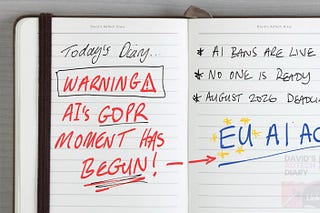 David's AdTech Diary
Today's Diary...
WARNING
AI's GDPR
MOMENT HAS
BEGUN!
* AI BANS ARE LIVE
* NO ONE IS READY
* AUGUST 2026 DEADLI
EU AI AC
DAVID'S
ADTECH
DIARY